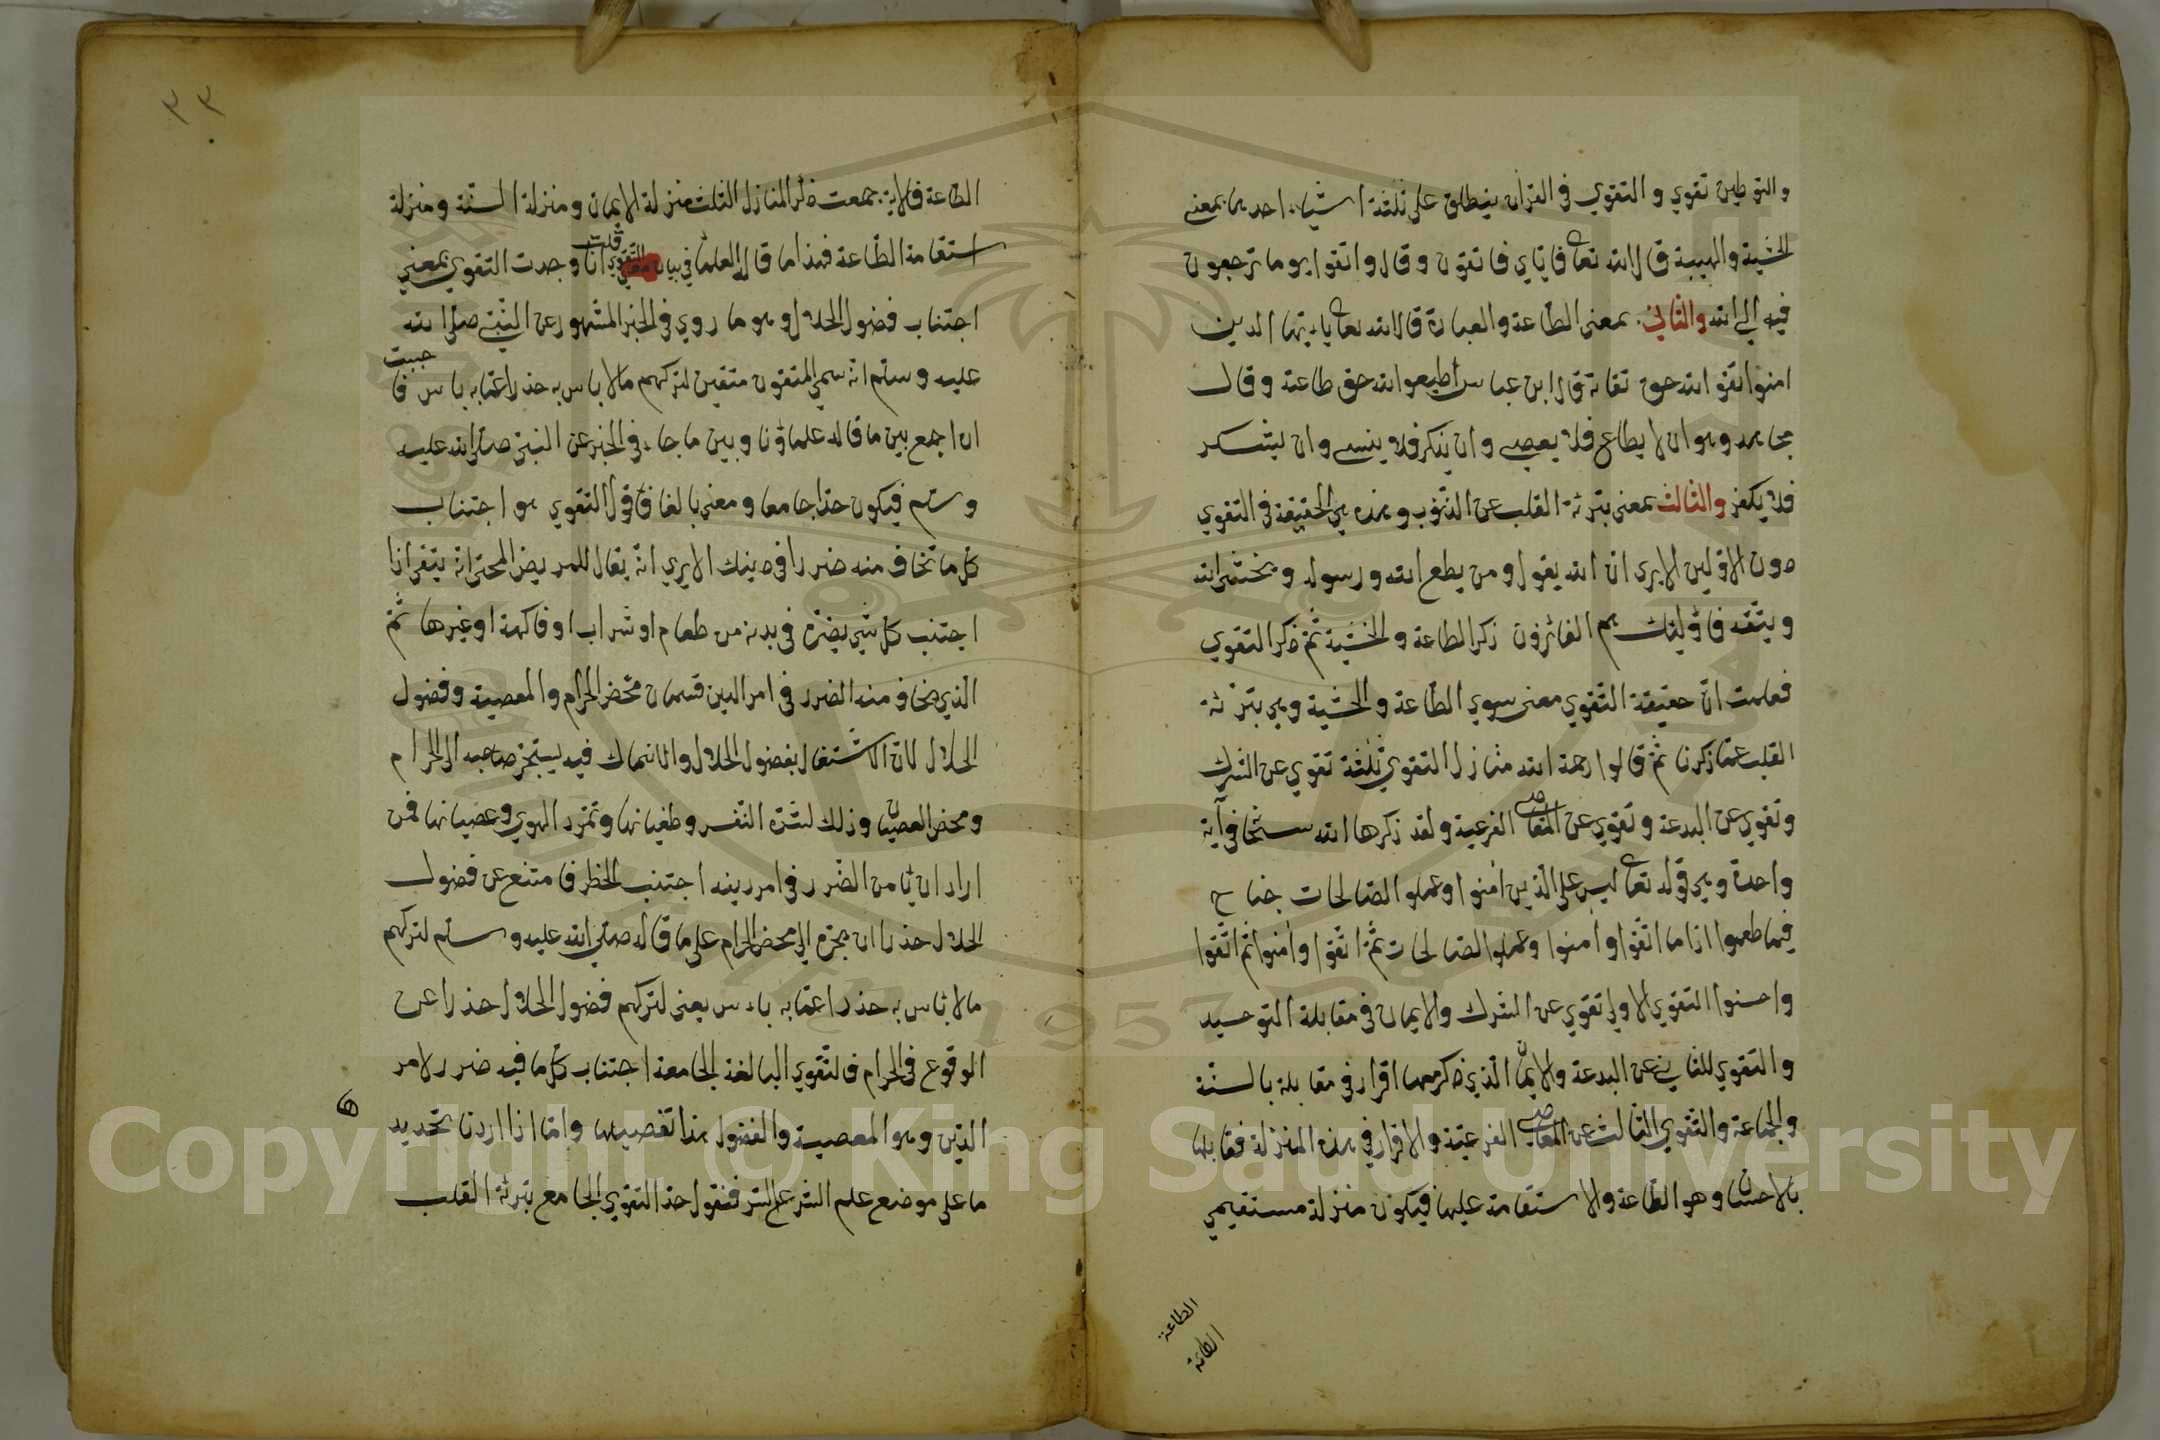 والتوطين تقوي والتقوي في القرآن ينطلق على ثلثة اشياء احدها بمعني
الخشية والهيبة قال الله تعا فاياي فاتقون وقال واتقوا يوما ترجعون
فيه الي الله والثاني بمعنى الطاعة والعبادة قال الله تعا ياءيها الذين
امنوا اتقوا الله حق تقاته قال ابن عباس اطيعوا الله حق طاعة وقال
مجاهد وهو ان لا يطاع فلا يعصي وان يذكر فلا ينسي وان يشكر
فلا يكفر والثالث بمعنى تبرئة القلب عن الذنوب وهذه هي الحقيقة في التقوي
دون الاولين الا يري ان الله يقول ومن يطع الله ورسوله ويخش الله
ويتقه فاولئك هم الفائزون ذكر الطاعة والخشية ثم ذكر التقوي
فعلمت ان حقيقة التقوي معنى سوي الطاعة والخشية وهي تبرئة
القلب عما ذكرنا ثم قالوا رحمة الله منازل التقوي ثلثة تقوي عن الشرك
وتقوي عن البدعة وتقوي عن المعاصي الفرعية ولقد ذكرها الله سبحا في آية
واحدة وهي قوله تعا ليس على الذين امنوا وعملوا الصالحات جناح
فيما طعموا اذا ما اتقوا وامنوا وعملوا الصالحات ثم اتقوا وامنوا ثم اتقوا
واحسنوا التقوي الاولي تقوي عن الشرك والايمان في مقابلة التوحيد
والتقوي للثاني عن البدعة والايمان الذي ذكر معها اقرار في مقابلة بالسنة
والجماعة والتقوي الثالث عن المعاصي الفرعية والاقرار في هذه المنزلة فقابلها
بالاحسان وهو الطاعة والاستقامة عليها فيكون منزلة مستقيمي
الطاعة
الطاعة
٣٣
الطاعة فالاية جمعت ذكر المنازل الثلث منزلة الايمان ومنزلة السنة ومنزلة
استقامة الطاعة فهذا ما قاله العلما في بيان معني التقوي قلت انا وجدت التقوي بمعني
اجتناب فضول الحلال وهو ما روي في الخبر المشهور عن النبي صلى الله
عليه وسلم انه سمي المتقون متقين لتركهم ما لا باس به حذرا عما به باس فاحببت
ان اجمع بين ما قاله علماؤنا وبين ما جاء في الخبر عن النبي صلى الله عليه
وسلم فيكون حدا جامعا ومعنى بالغا فاقول التقوي هو اجتناب
كل ما تخاف منه ضررا في دينك الا يري انه يقال للمريض المحتمي انه يتقي اذا
اجتنب كل شي يضره في بدنه من طعام او شراب او فاكهة او غيرها ثم
الذي يخاف منه الضرر في امر الدين قسمان محض الحرام والمعصية وفضول
الحلال لان الاشتغال بفضول الحلال والانهماك فيه يستجر صاحبه الى الحرام
ومحض العصيان وذلك لشره النفس وطغيانها وتمرد الهوي وعصيانها فمن
اراد ان يامن الضرر في امر دينه اجتنب الخطر فامتنع عن فضول
الحلال حذرا ان يجره الي محض الحرام على ما قاله صلى الله عليه وسلم لتركهم
ما لا باس به حذرا عما به باءس يعني لتركهم فضول الحلال حذرا عن
الوقوع في الحرام فالتقوي البالغة الجامعة اجتناب كل ما فيه ضرر لامر
الدين وهو المعصية والفضول هذا تفصيلها واما اذا اردنا تحديد
ما على موضع علم الشرع السر فنقول حد التقوي الجامع تبرئة القلب
Copyright © King Saud University
1957